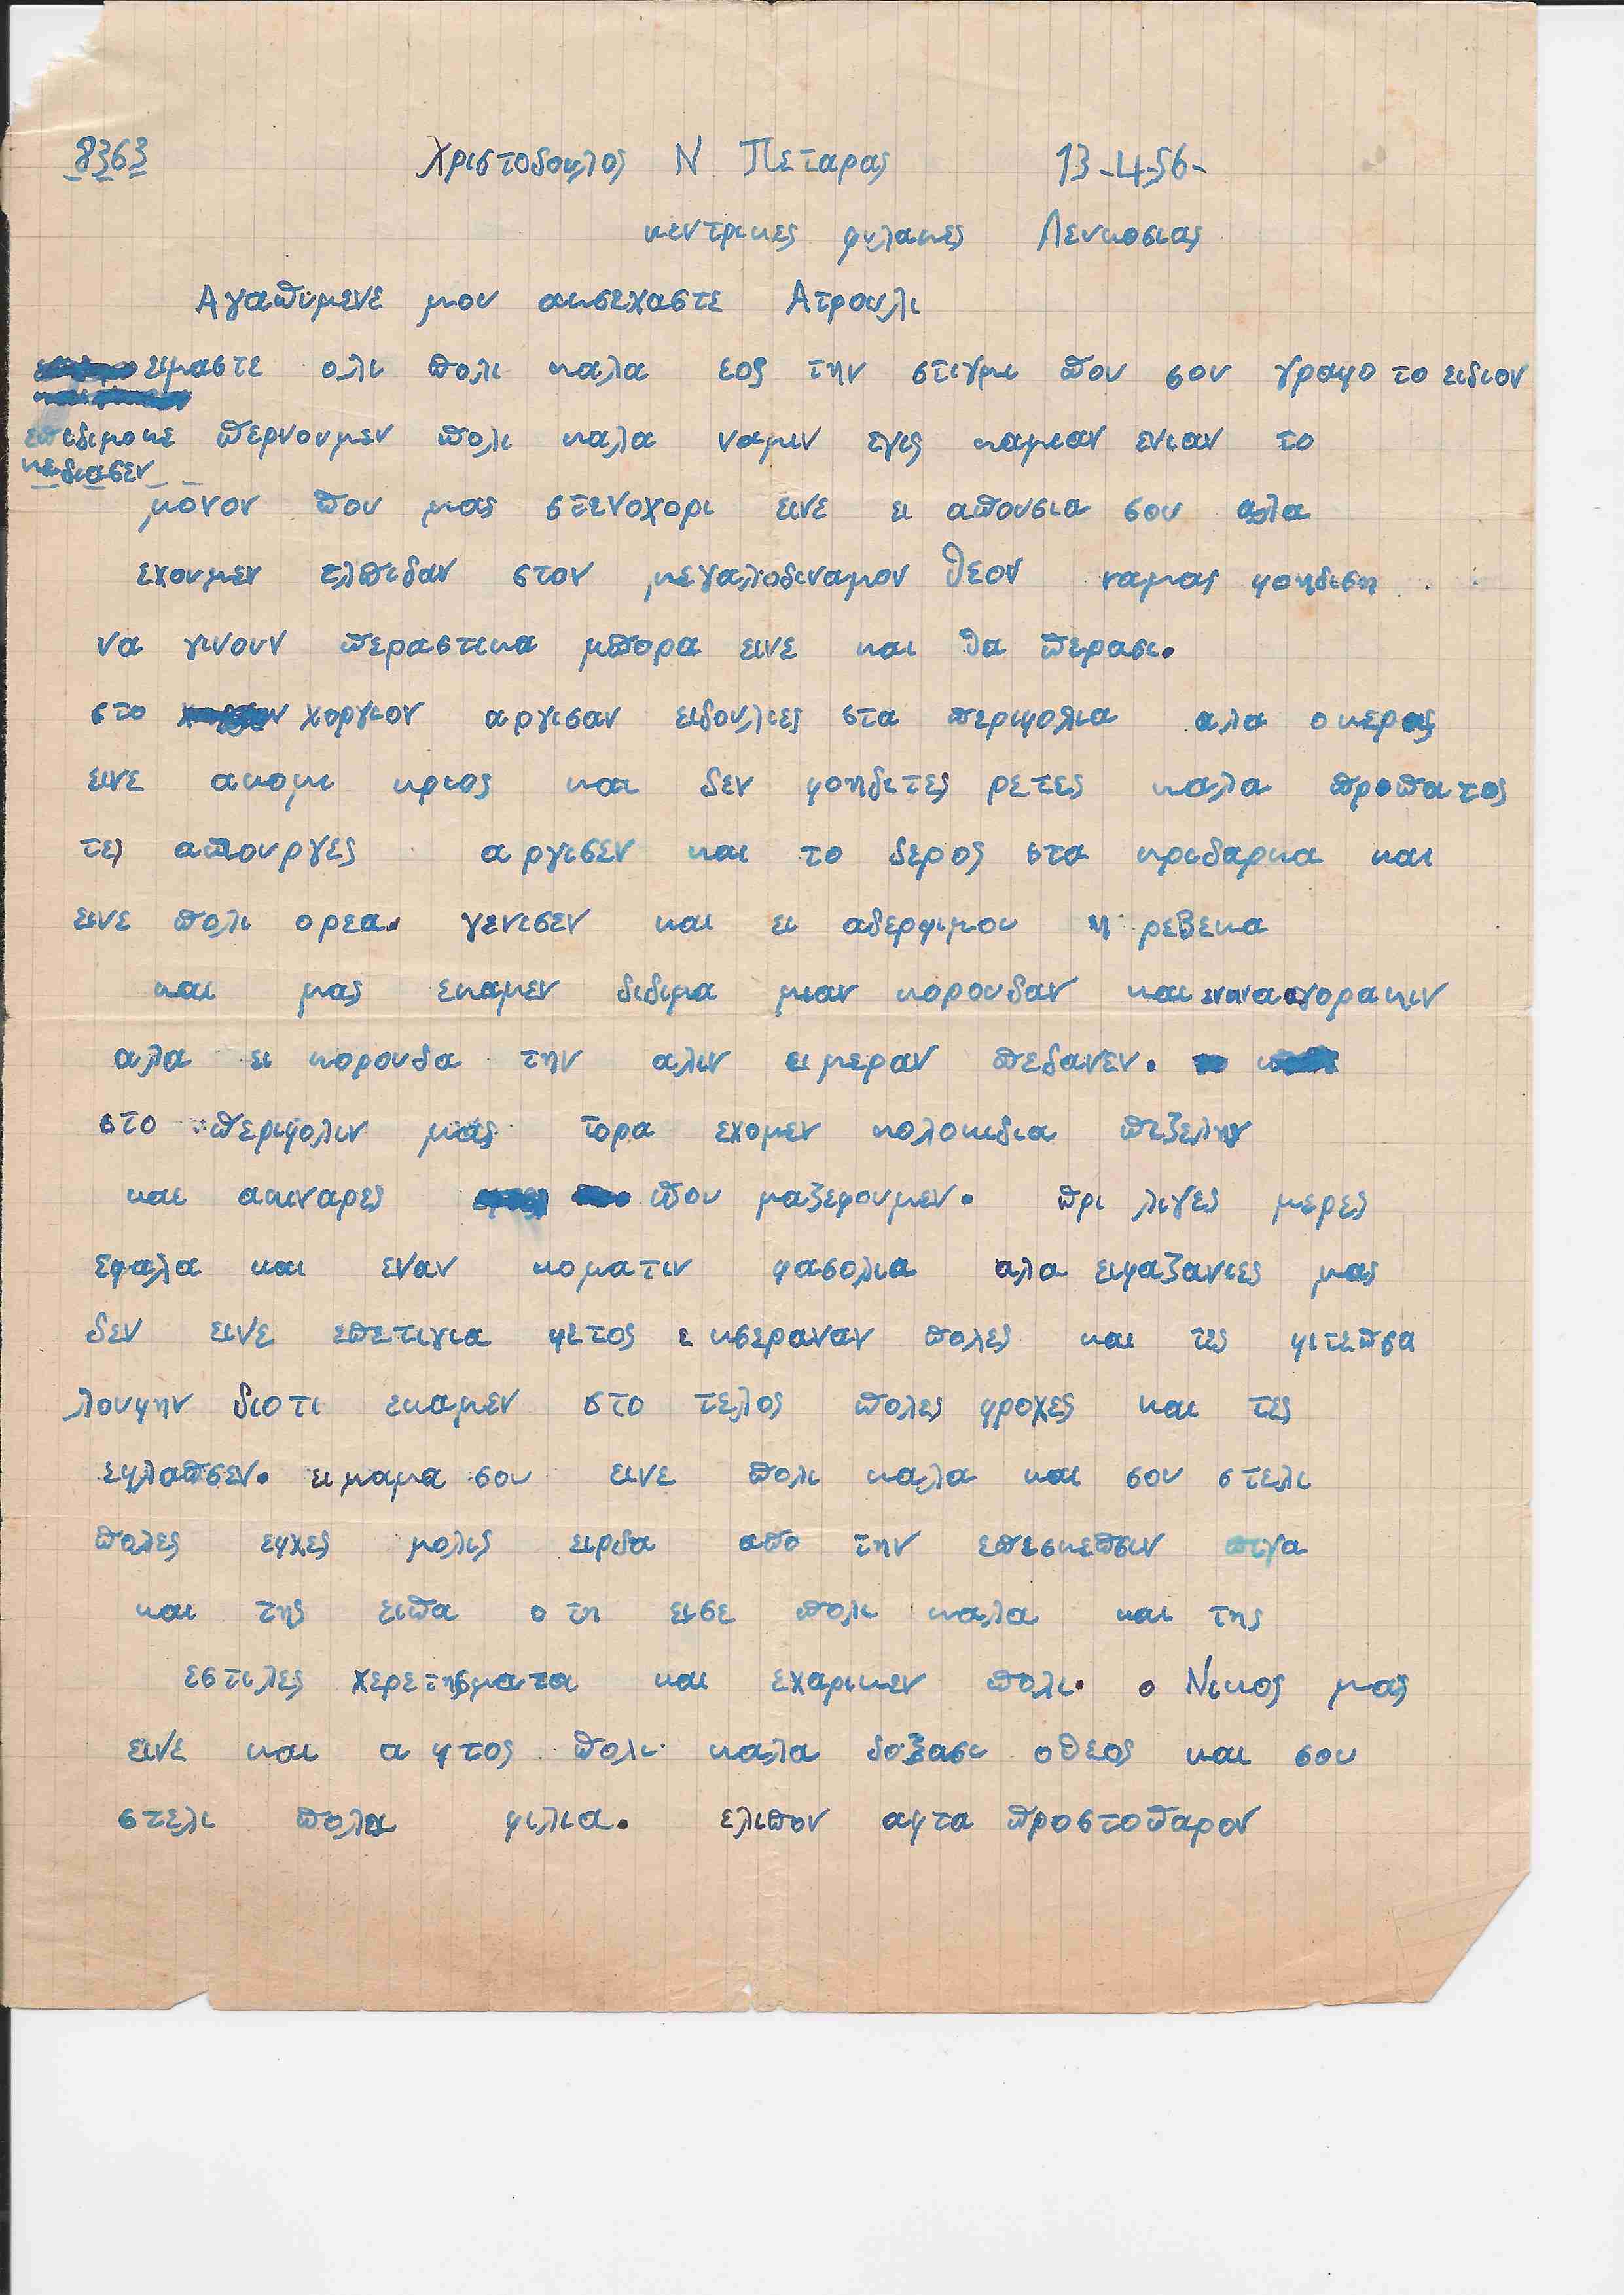 8363 Χριστοδουλος Ν Πεταρας 13-4-56-
κεντρικες φυλακες Λευκοσιας
Αγαπυμενε μου ακσεχαστε Ατρουλι
ειμαστε ολι πολι καλα εος την στιγμι που σου γραφο το ειδιον
επιδιμο κε περνουμεν πολι καλα ναμιν εχις καμιαν ενιαν το
κε διασεν
μονον που μας στενοχορι εινε ει απουσια σου αλα
εχουμεν ελπιδαν στον μεγαλοδιναμον θεον ναμας φοηδιση
να γινουν περαστικα μπορα εινε και θα περασι.
στο χοργιον αργισαν ειδουλιες στα περιφολια αλα ο κερος
εινε ακομι κριος και δεν φοηδιτες ρετες καλα προπατος
τες απουργες αργισεν και το δερος στα κριδαρκα και
εινε πολι ορεα. γενισεν και ει αδερφιμου η ρεβεκα
και μας εκαμεν διδιμα μιαν κορουδαν και εναν αγορακιν
αλα ει κορουδα την αλιν ειμεραν πεδανεν.
στο περιφολιν μας τορα εχομεν κολοκιδια πιζελιν
και ακιναρες που μαζεφουμεν. πρι λιγες μερες
εφαλα και εναν κοματιν φασολια αλα ειφαζανιες μας
δεν εινε επετιγια φετος εκσεραναν πολες και τες φιτεπσα
λουφην διοτι εκαμεν στο τελος πολες φροχες και τες
εφλαπσεν. ει μαμα σου εινε πολι καλα και σου στελι
πολες εφχες μολις ειρδα απο την επεσκεπσιν πιγα
και της ειπα οτη εισε πολι καλα και της
εστιλες χερετησματα και εχαρικεν πολι. ο Νικος μας
εινε και αφτος πολι καλα δοξασι οθεος και σου
στελι πολα φιλια. ελιπον αφτα προστοπαρον